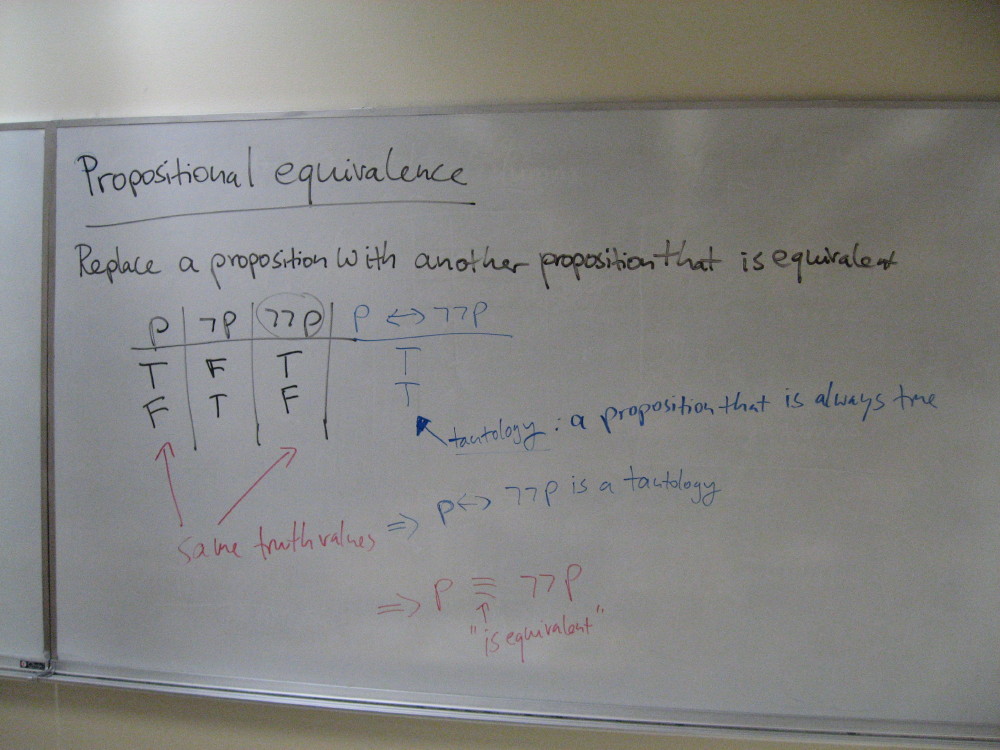 Propositional equivalence
Replace a proposition with another proposition that is equivalent
P ¬P ¬¬P P ↔ ¬¬P
T F T T
F T F T
tautology : a proposition that is always true
same truth values
⇒ P ↔ ¬¬P is a tautology
⇒ P ≡ ¬¬P
↑
"is equivalent"